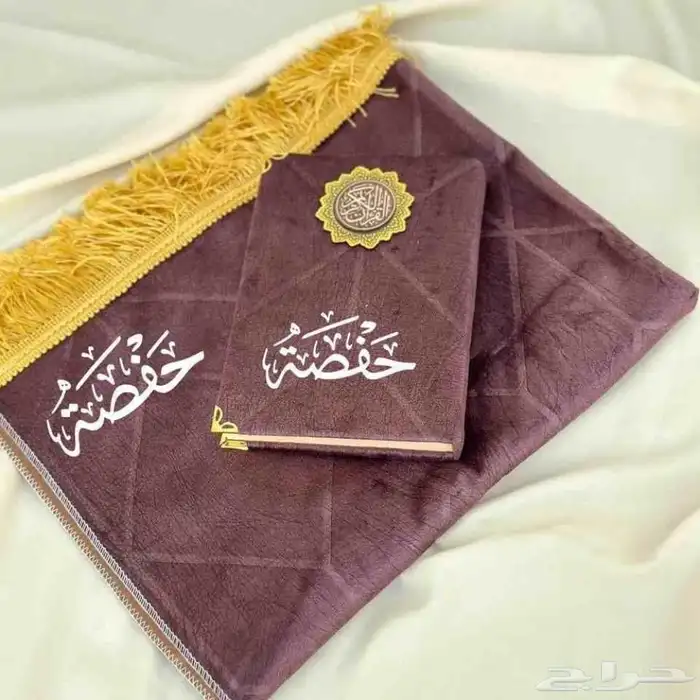 القرآن الكريم
حَفْصَةُ
حَفْصَةُ
حراج